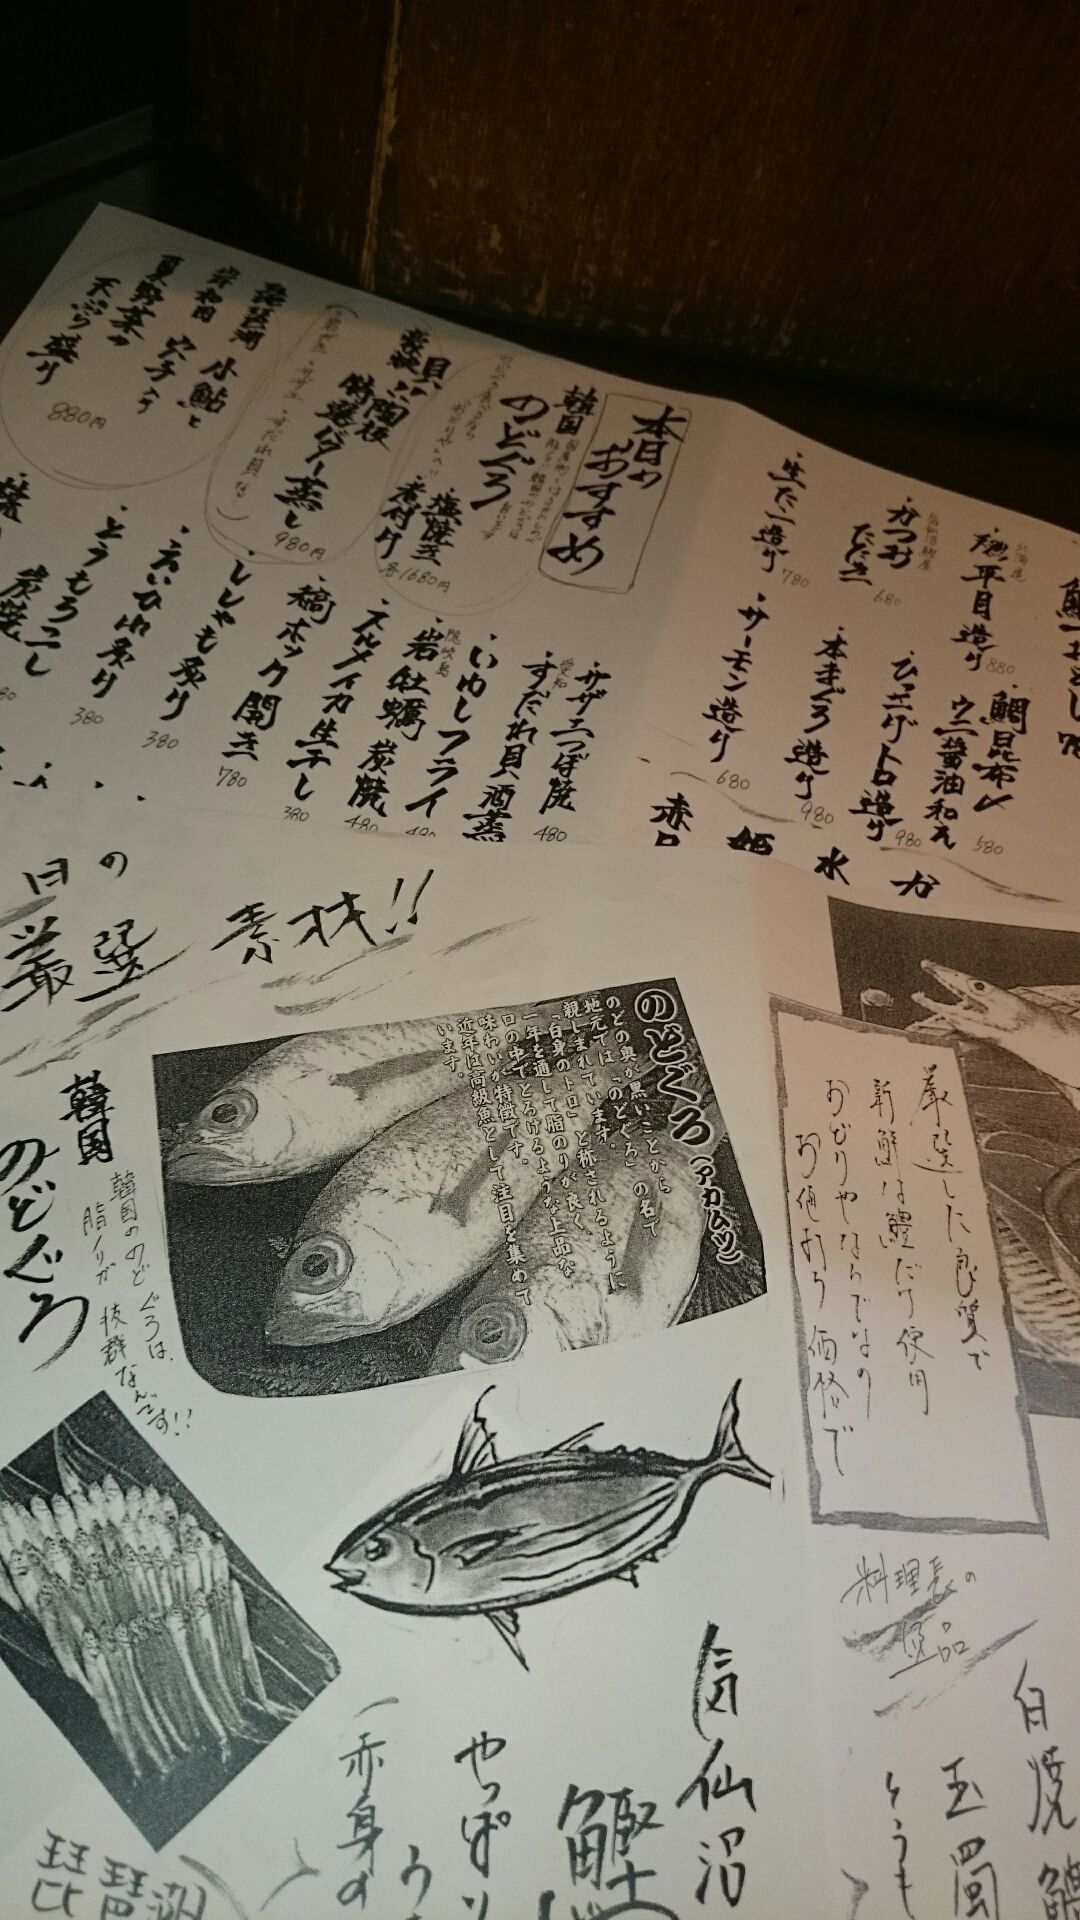 本日の
おすすめ
韓国
のどぐろ
塩焼き
煮付け
各1680円
貝の陶板
特選バター蒸し
980円
琵琶湖
小鮎と
岸和田
穴子の
夏野菜の
天ぷら盛り
880円
サザエつぼ焼
480
愛知
すだれ貝酒蒸
いわしフライ
480
隠岐島
岩牡蠣 炭焼
480
スルメイカ生干し
380
縞ホッケ開き
780
ししゃも炙り
380
えいひれ炙り
380
とうもろこし
炭焼
北海道
平目造り
880
鯛昆布〆
580
ウニ醤油和え
気仙沼鰹屋
かつお
たたき
680
ひっさげトロ造り
980
生たこ造り
780
本まぐろ造り
980
サーモン造り
680
赤
姫
水
か
日の
厳選
素材!!
のどぐろ(アカムツ)
のどの奥が黒いことから
地元では「のどぐろ」の名で
親しまれています。
「白身のトロ」と称されるように
一年を通して脂のりが良く、
口の中でとろけるような上品な
味わいが特徴です。
近年は高級魚として注目を集めて
います。
韓国
のどぐろ
韓国ののどぐろは、
脂ノリが 抜群なんです!!
厳選した良質で
新鮮な鱧だけ使用
おどりやならではの
お値打ち価格で
料理長の
逸品
気仙沼
鰹
やっぱり
赤身の
琵琶湖
白焼
玉蜀
とうも